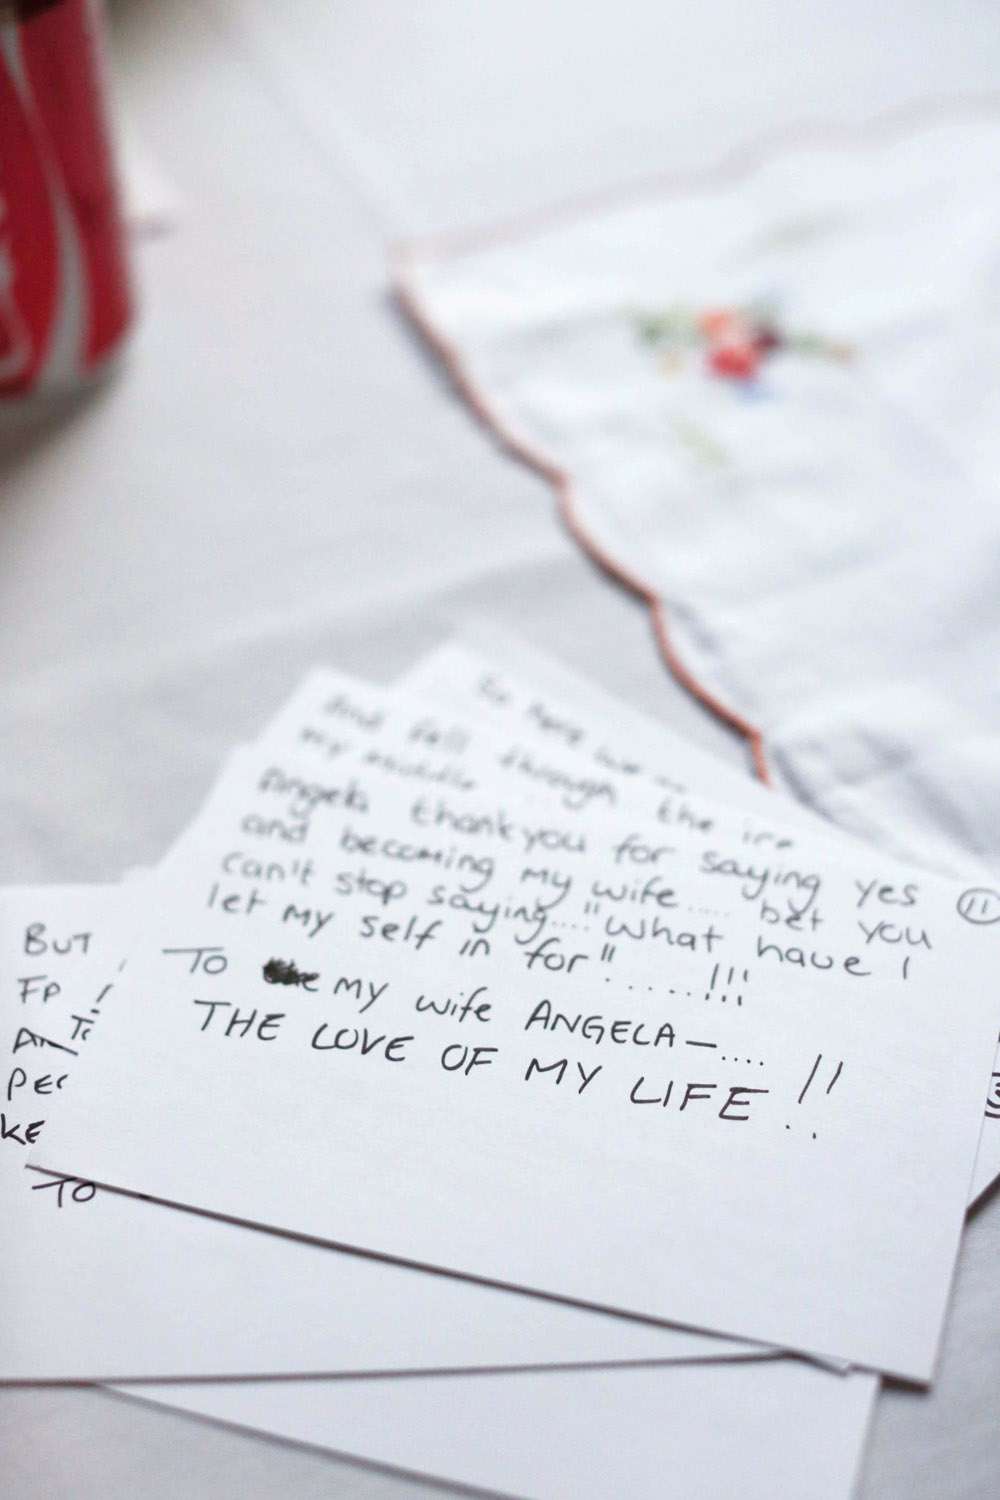 So here we
and fall through the
my
Angela thankyou for saying yes
and becoming my wife..... bet you
can't stop saying...."What have I
let my self in for"......!!!
To my wife ANGELA—.... !!
THE LOVE OF MY LIFE..
11
BUT
FP
PEC
KE
TO